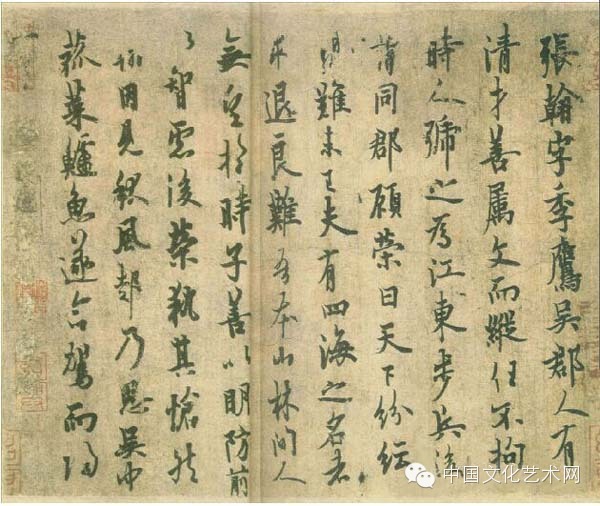 張翰字季鷹吳郡人有
清才善屬文而縱任不拘
時人號之為江東步兵後
謂同郡顧榮曰天下紛紜
禍難未已夫有四海之名者
求退良難吾本山林間人
無望於時子善以明防前
以智慮後榮執其愴然
翰因見秋風起乃思吳中
菰菜鱸魚遂命駕而歸
中国文化艺术网